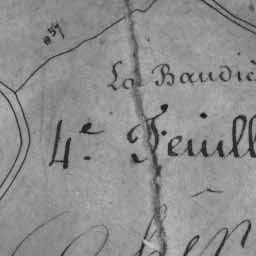 n° 34
La Baudiè
4e. Feuill